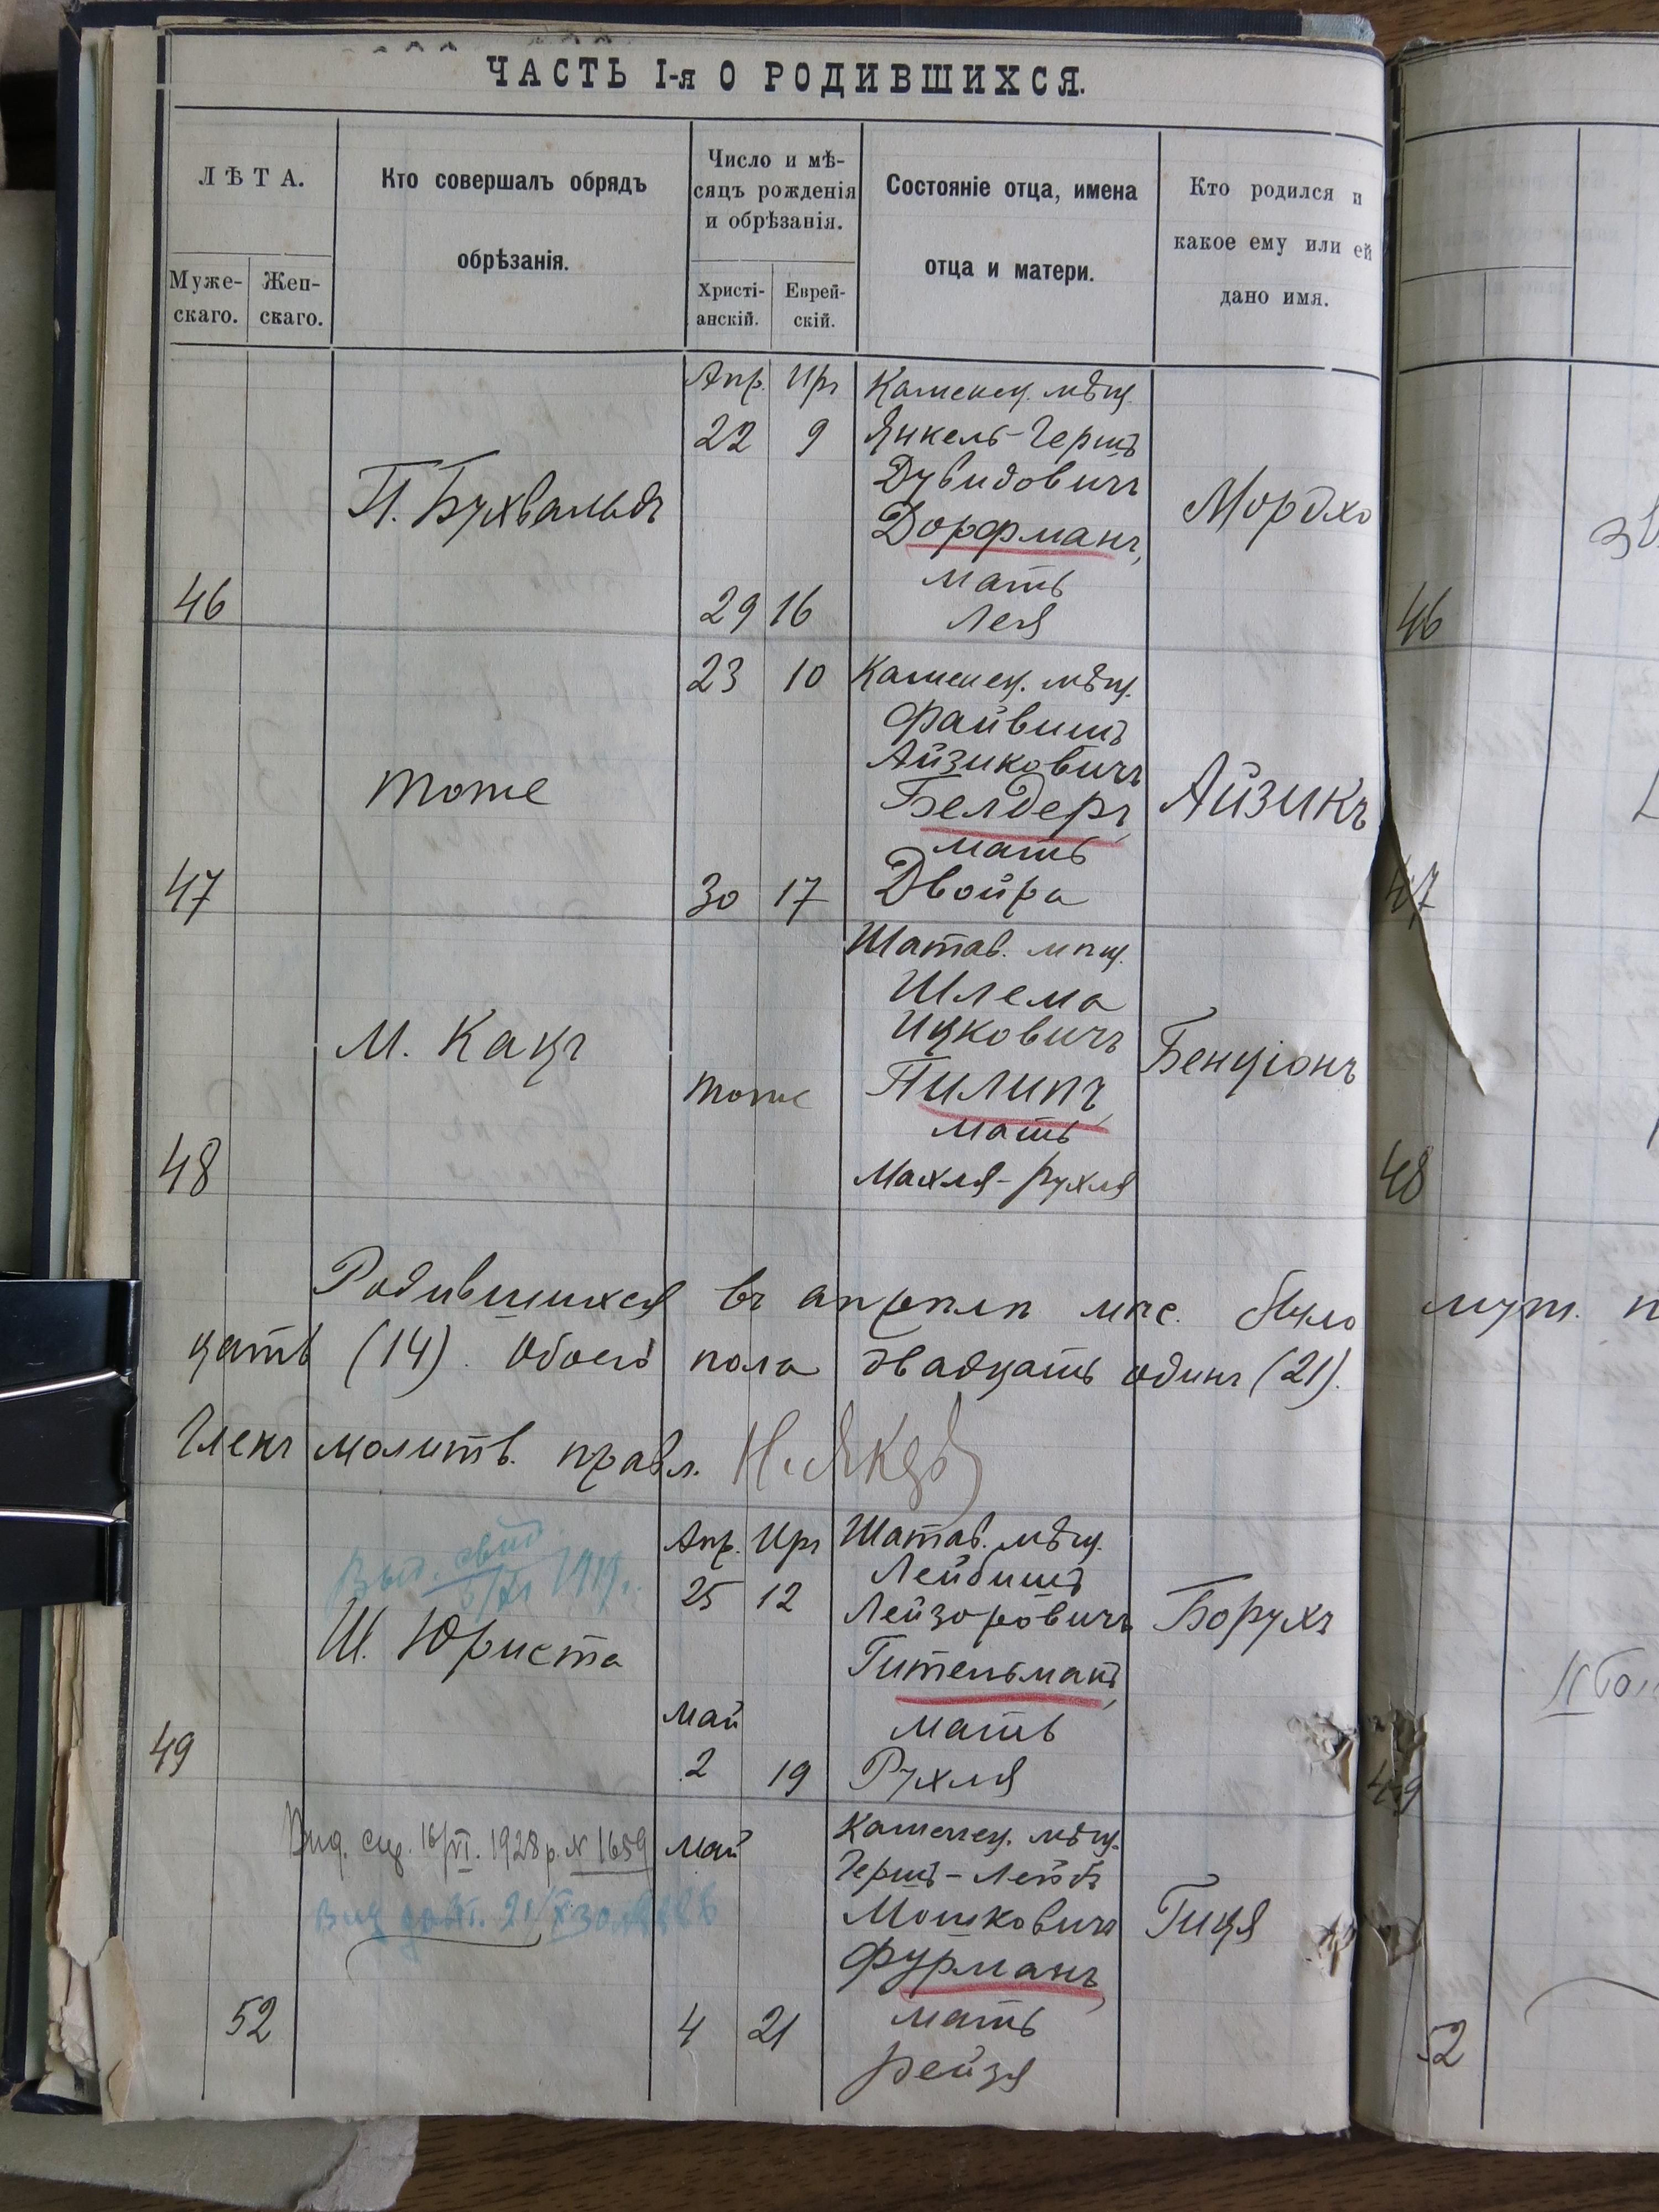 ЧАСТЬ I-я О РОДИВШИХСЯ.
ЛѢТА.
Муже-
скаго.
Жен-
скаго.
Кто совершалъ обрядъ
обрѣзанія.
Число и мѣ-
сяцъ рожденія
и обрѣзанія.
Христі-
анскій.
Еврей-
скій.
Состояніе отца, имена
отца и матери.
Кто родился и
какое ему или ей
дано имя.
46
П. Бухвальдъ
Апр. Иръ
22 9
29 16
Каменец. мѣщ.
Янкель-Гершъ
Дувидовичъ
Дорфманъ,
мать
Лея
Мордхо
46
47
тоже
23 10
30 17
Каменец. мѣщ.
Файвишъ
Айзиковичъ
Белдеръ,
мать
Двойра
Айзикъ
47
48
М. Кацъ
тоже
Шатав. мѣщ.
Шлема
Ицковичъ
Пилипъ,
мать
Махля-Рухля
Бенціонъ
48
Родившихся въ апрѣлѣ мѣс. было муж.
цать (14). Обоего пола двадцать одинъ (21).
Членъ молитв. правл.
49
Выд. свид.
1919г.
Ш. Юриста
Апр. Иръ
25 12
Май
2 19
Шатав. мѣщ.
Лейбишъ
Лейзоровичъ
Гительманъ,
мать
Рухля
Борухъ
49
52
Вид. 16/VI. 1928 р. № 1659
Май
4 21
Каменец. мѣщ.
Гершъ-Лейбъ
Мошковичъ
Фурманъ,
мать
Рейзя
Гиця
52